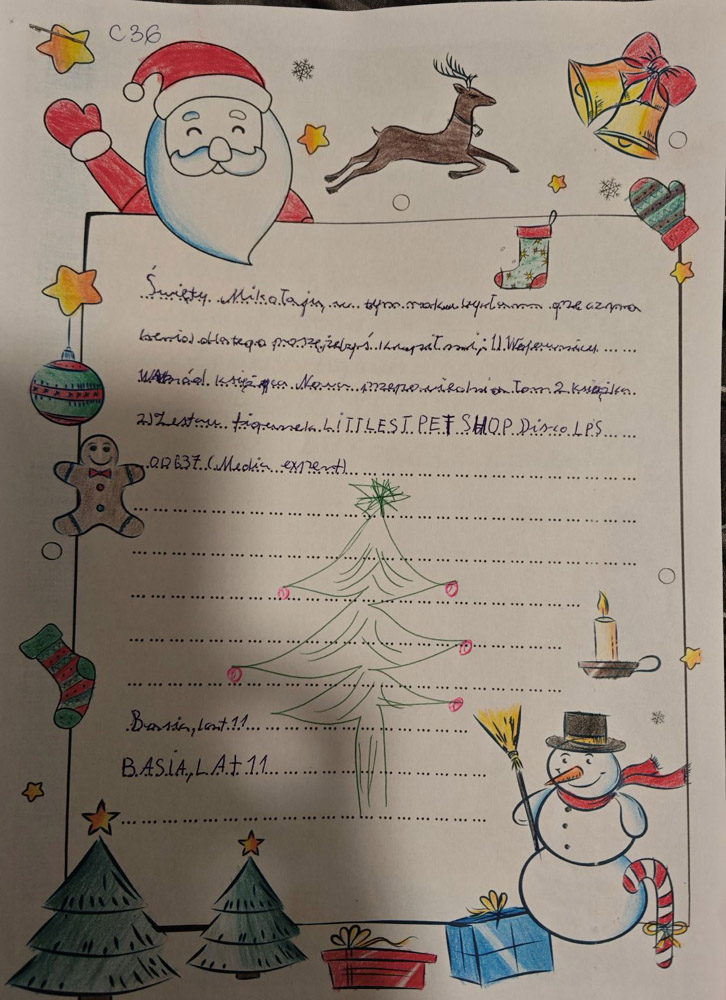 C36
Święty Mikołaju w tym roku byłam grzeczna
dlatego proszę żebyś kupił mi: 1) Wojownicy
książka Nowa przepowiednia Tom 2 książka
2) Zestaw figurek LiTTLEST PET SHOP Disco LPS
00637 (Media expert)
Basia, lat 11
BASiA, LAt 11